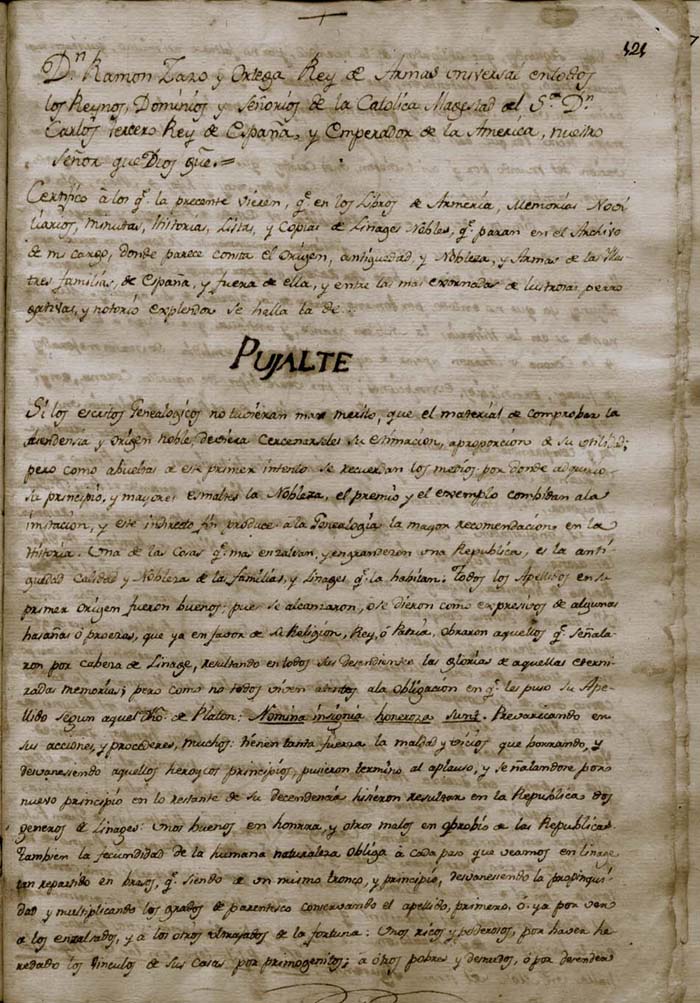 121
Dn. Ramon Zazo y Ortega Rey de Armas universal en todos
los Reynos, Dominios y Señorios de la Catolica Magestad del Sor. Dn.
Carlos tercero Rey de España, y Emperador de la America, nuestro
Señor que Dios gue.=
Certifico â los q.e la precente vieren, q.e en los Libros de Armeria, Memorias Nobi
liarios, minutas, Historias, Listas, y Copias de Linages Nobles, q.e paran en el Archivo
de mi cargo, donde parece consta el Origen, antiguedad, y Nobleza, y Armas de las Ylus
tres familias, de España, y fuera de ella, y entre las mas exornadas de lustrosas perro
gativas, y notorio explendor se halla la de..
PUJALTE
Si los escritos Genealogicos no tuvieran mas merito, que el material de comprobar la
decendencia y Origen noble, deviera Cercenarseles su estimacion, aproporcion de su utilidad;
pero como abueltas de este primer intento se recuerdan los medios por donde adquirio
su principio, y mayores esmaltes la Nobleza, el premio y el exemplo combidan ala
imitacion, y este indirecto fin produce a la Genealogia la mayor recomendacion en la
Historia. Una de las Cosas q.e mas enzalzan, y engrandecen una Republica, es la anti-
guedad Calidad y Nobleza de las familias, y Linages q.e la habitan: Todos los Apellidos en su
primer Origen fueron buenos; pues se alcanzaron, o se dieron como expresivos de algunas
hasañas ô proezas, que ya en favor de su Religion, Rey, ô Patria, obraron aquellos q.e señala-
ron por cabeza de Linage, resultando en todos sus descendientes las glorias de aquellas eterni-
zadas memorias; pero como no todos viven atentos ala obligacion en q.e les puso su Ape-
llido segun aquel de Platon: Nomina insignia honeroza sunt. Prevaricando en
sus acciones, y procederes, muchos: tienen tanta fuerza la maldad y vicios que borrando, y
desvanesiendo aquellos heroycos principios, pusieron termino al aplauso, y señalandose por
nuevo principio en lo restante de su decendencia hisieron resultar en la Republica dos
generos de Linages: Unos buenos en honrra, y otros malos en oprobio de las Republicas.
Tambien la fecundidad de la humana naturaleza obliga à cada paso que veamos en linages
tan repartido en brasos, q.e siendo de un mismo tronco, y principio, desvanesiendo la propinqui-
dad y multiplicando los grados de parentesco conservando el apellido, primero, ô ya por ver
a los enzalsados, y à los otros ultrajados de la fortuna: Unos ricos y poderosos, por haver he-
redado los vinculos de sus Casas por primogenitos; a otros pobres y desnudos, ô por desender